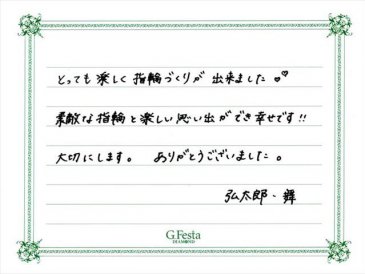 とっても楽しく指輪づくりが出来ました♡♡
素敵な指輪と楽しい思い出ができ幸せです!!
大切にします。 ありがとうございました。
弘太郎・舞
G.Festa
DIAMOND